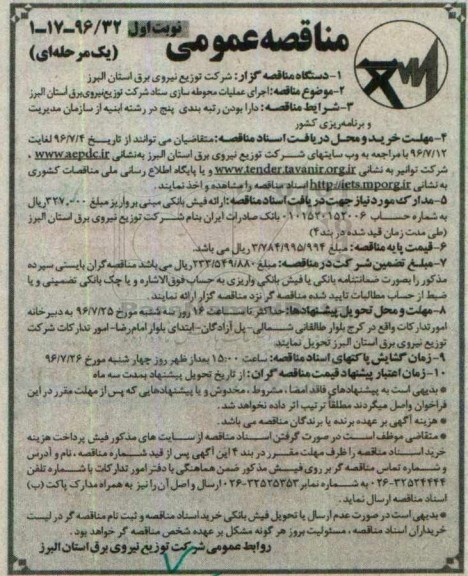 مناقصه عمومی
نوبت اول ۹۶/۳۲-۱۷-۱
(یک مرحله‌ای)
۱-دستگاه مناقصه گزار: شرکت توزیع نیروی برق استان البرز
۲-موضوع مناقصه: اجرای عملیات محوطه سازی ستاد شرکت توزیع نیروی برق استان البرز
۳-شرایط مناقصه: دارا بودن رتبه بندی پنج در رشته ابنیه از سازمان مدیریت
و برنامه‌ریزی کشور
۴-مهلت خرید و محل دریافت اسناد مناقصه: متقاضیان می توانند از تاریخ ۹۶/۷/۴ لغایت
۹۶/۷/۱۲ با مراجعه به وب سایتهای شرکت توزیع نیروی برق استان البرز به‌نشانی www.aepdc.ir ،
شرکت توانیر به نشانی www.tender.tavanir.org.ir و یا پایگاه اطلاع رسانی ملی مناقصات کشوری
به نشانی http://iets.mporg.ir اسناد مناقصه را مشاهده و اخذ نمایند.
۵-مدارک مورد نیاز جهت دریافت اسناد مناقصه: ارائه فیش بانکی مبنی بر واریز مبلغ ۳۲۷,۰۰۰ ریال
به شماره حساب ۰۱۰۱۵۳۰۱۵۲۰۰۶ بانک صادرات ایران بنام شرکت توزیع نیروی برق استان البرز
(طی مدت زمان قید شده در بند۴)
۶-قیمت پایه مناقصه: مبلغ ۳/۷۸۴/۹۹۵/۹۹۴ ریال می باشد.
۷-مبلغ تضمین شرکت در مناقصه: مبلغ ۲۳۳/۵۴۹/۸۸۰ ریال می باشد مناقصه گران بایستی سپرده
مذکور را بصورت ضمانتنامه بانکی یا فیش بانکی واریزی به حساب فوق‌الاشاره و یا چک بانکی تضمینی و یا
ضبط از حساب مطالبات تایید شده مناقصه گر نزد مناقصه گزار ارائه نمایند.
۸-مهلت و محل تحویل پیشنهادها: حداکثر تا ساعت ۱۶ روز سه شنبه مورخ ۹۶/۷/۲۵ به دبیرخانه
امور تدارکات واقع در کرج بلوار طالقانی شمالی-پل آزادگان-ابتدای بلوار امام‌رضا- امور تدارکات شرکت
توزیع نیروی برق استان البرز تحویل نمایند.
۹-زمان گشایش پاکتهای اسناد مناقصه: ساعت ۱۵:۰۰ بعداز ظهر روز چهار شنبه مورخ ۹۶/۷/۲۶
۱۰-زمان اعتبار پیشنهاد قیمت مناقصه گران: از تاریخ تحویل پیشنهاد بمدت سه ماه
* بدیهی است به پیشنهادهای فاقد امضا، مشروط، مخدوش و یا پیشنهادهایی که پس از مهلت مقرر در این
فراخوان واصل میگردند مطلقا ترتیب اثر داده نخواهد شد.
* هزینه آگهی بر عهده برنده یا برندگان مناقصه می باشد.
* متقاضی موظف است در صورت گرفتن اسناد مناقصه از سایت های مذکور فیش پرداخت هزینه
خرید اسناد مناقصه را ظرف مهلت مقرر در بند ۴ این آگهی پس از قید شماره مناقصه، نام و آدرس
و شماره تماس مناقصه گر بر روی فیش مذکور ضمن هماهنگی با دفتر امور تدارکات با شماره تلفن
۰۲۶-۳۲۵۲۴۴۴۴ به شماره نمابر ۰۲۶-۳۲۵۲۵۳۵۳ ارسال و اصل آن را نیز به همراه مدارک پاکت (ب)
اسناد مناقصه ارسال نماید.
* بدیهی است در صورت عدم ارسال یا تحویل فیش بانکی خرید اسناد مناقصه و ثبت نام مناقصه گر در لیست
خریداران اسناد مناقصه، مسئولیت بروز هر گونه مشکل بر عهده شخص مناقصه گر خواهد بود.
روابط عمومی شرکت توزیع نیروی برق استان البرز